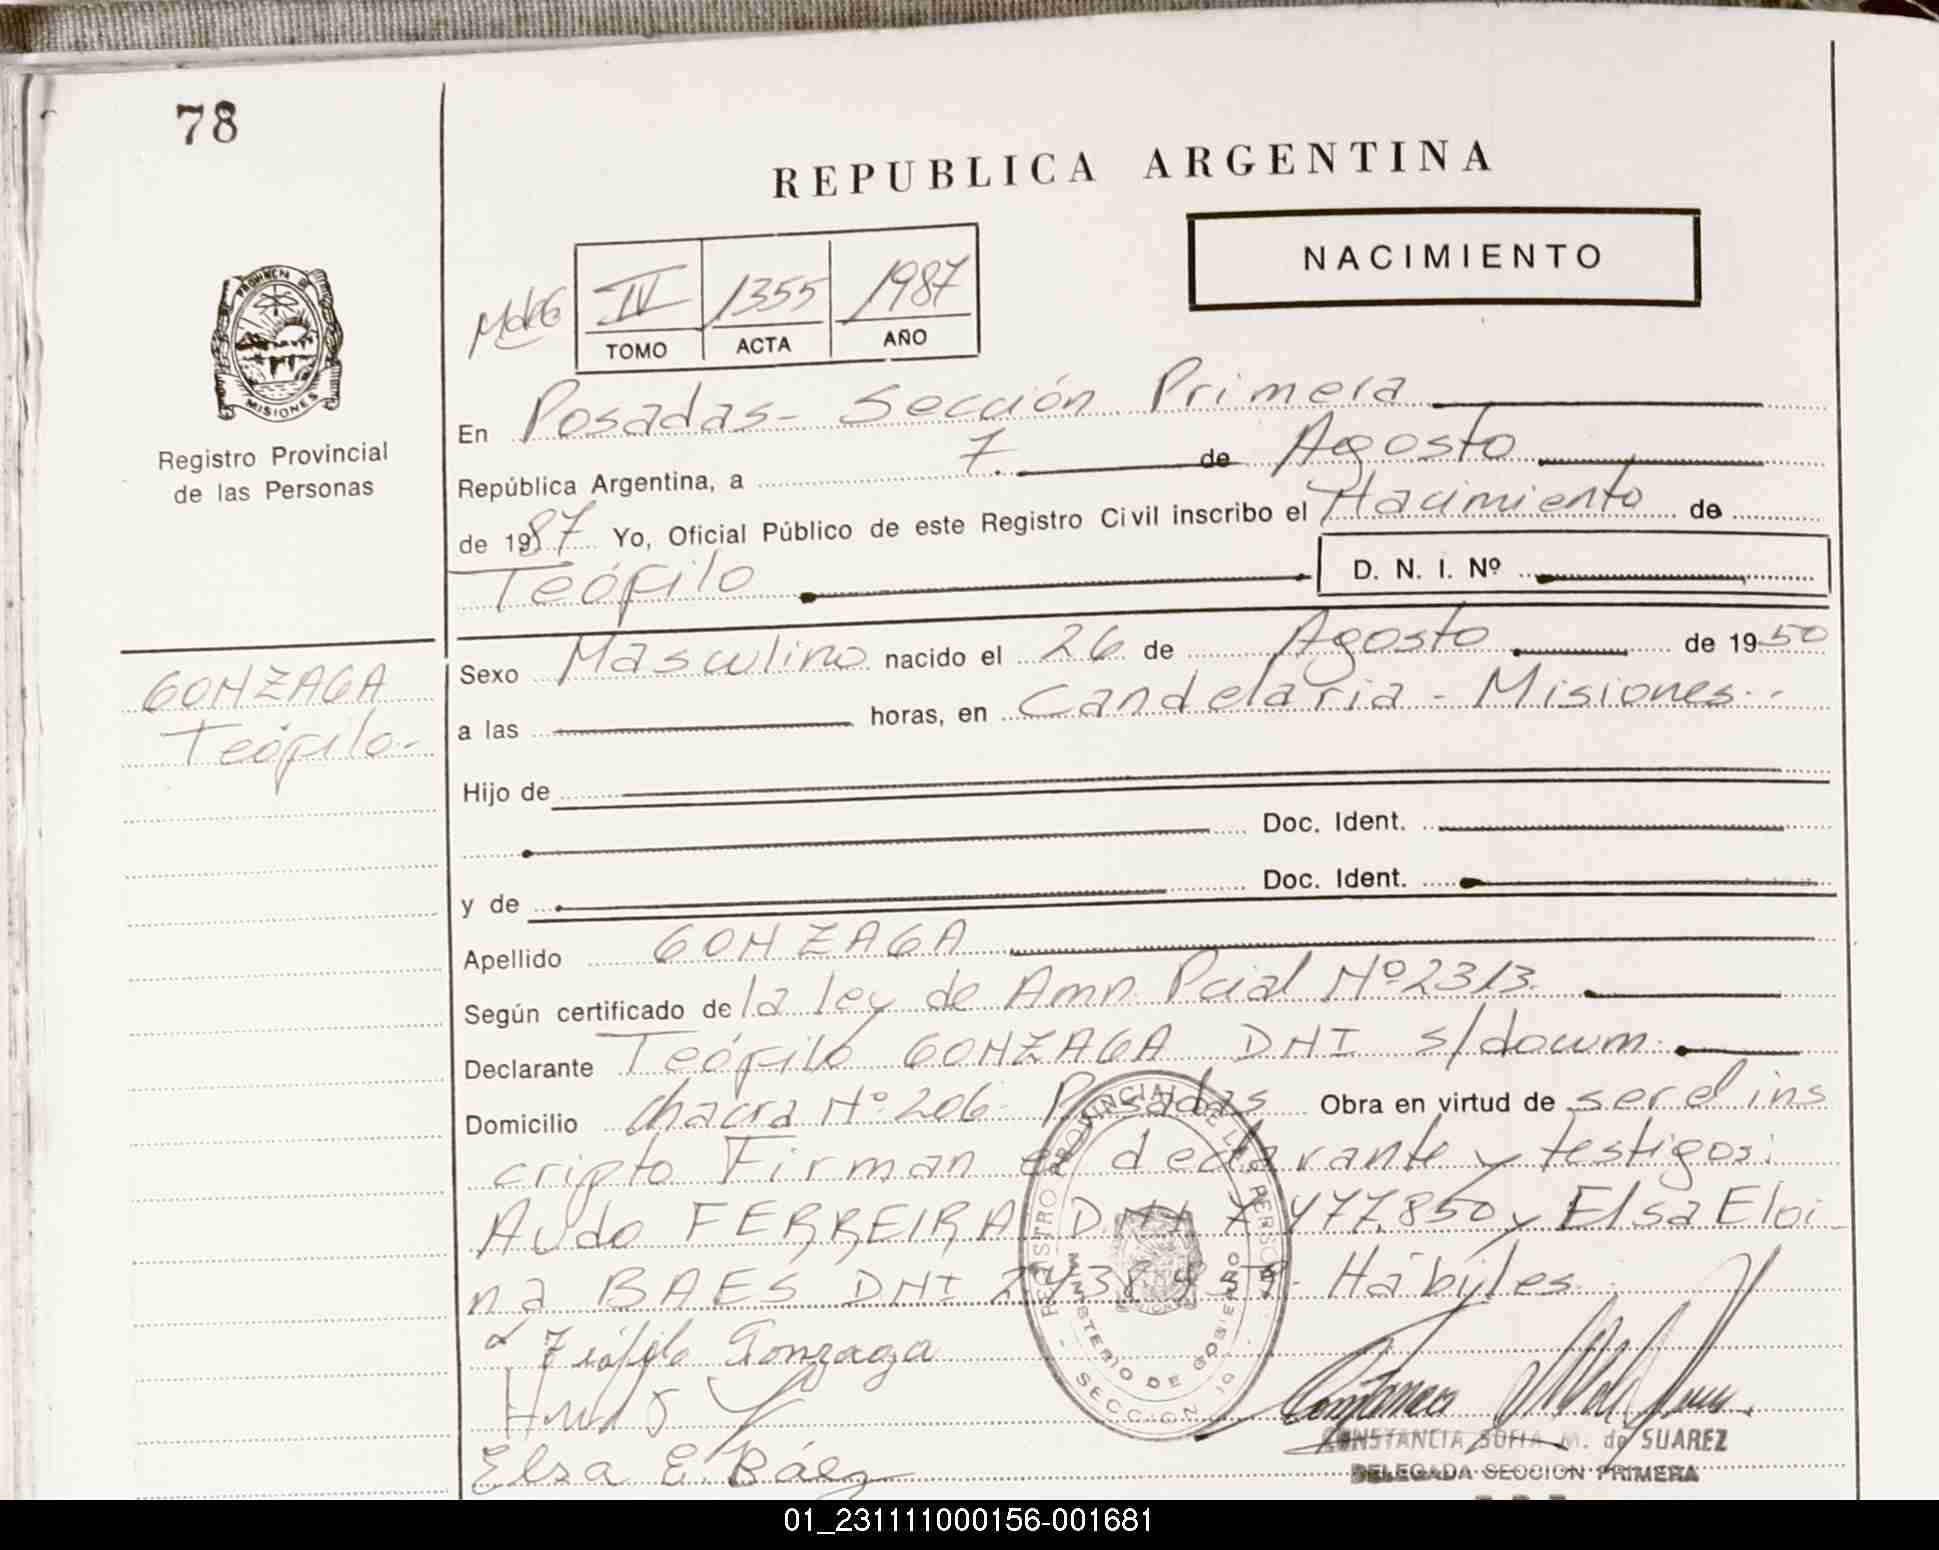 78
REPUBLICA ARGENTINA
NACIMIENTO
IV 1355 1987
TOMO ACTA AÑO
PROVINCIA DE
MISIONES
Registro Provincial
de las Personas
En Posadas - Sección Primera
República Argentina, a 7 de Agosto
de 1987 Yo, Oficial Público de este Registro Civil inscribo el Nacimiento de
Teófilo D. N. I. Nº
GONZAGA
Teófilo-
Sexo Masculino nacido el 26 de Agosto de 1950
a las horas, en Candelaria - Misiones.-
Hijo de
Doc. Ident.
y de Doc. Ident.
Apellido GONZAGA
Según certificado de la ley de Amn. Pcial Nº 2313.
Declarante Teófilo GONZAGA DNI s/docum.
Domicilio Chacra Nº 206. Posadas Obra en virtud de ser el ins
cripto Firman el declarante y testigos:
FERREIRA D.N.I 7.477.850 y Elsa Eloi-
na BAES DNI Hábiles.
Teófilo Gonzaga
Elsa E. Báez
REGISTRO PROVINCIAL DE LAS PERSONAS
MINISTERIO DE GOBIERNO
SECCION 1ª
CONSTANCIA SOFIA M. de SUAREZ
DELEGADA SECCION PRIMERA
01_231111000156-001681